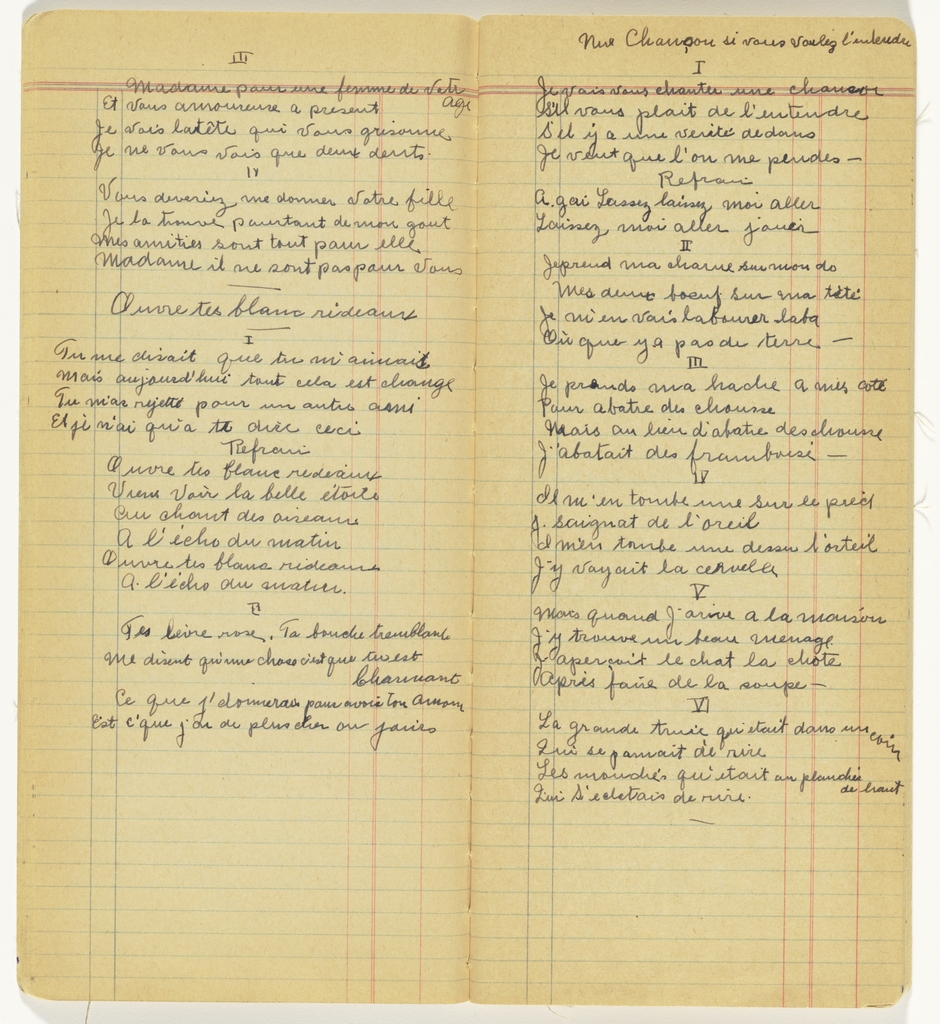 III
Madame pour une femme de votre
age
Et vous amoureuse a present
Je vois latête qui vous grisonne
Je ne vous vois que deux dents.
IV
Vous devriez me donner votre fille
Je la trouve pourtant de mon gout
Mes amities sont tout pour elle
Madame il ne sont pas pour vous
Ouvre tes blanc rideaux
I
Tu me disait que tu m'aimait
Mais aujourd'hui tout cela est changé
Tu m'as rejetté pour un autre ami
Et je n'ai qu'a te dire ceci
Refrain
Ouvre tes blanc rideaux
Viens voir la belle étoile
Au chant des oiseaux
A l'écho du matin
Ouvre tes blanc rideaux
A l'écho du matin.
II
Tes levre rose. Ta bouche tremblant
Me disent qu'une chose c'est que tu est
Charmant
Ce que j'donnerais pour avoir ton amour
Est c'que j'ai de plus cher au
Une Chanson si vous voulez l'entendre
I
Je vais vous chanter une chanson
S'il vous plait de l'entendre
S'il y a une verité dedans
Je veut que l'on me pendes —
Refrain
A. gai Lassez laissez moi aller
Laissez moi aller jouer
II
Je prend ma charue sur mon do
Mes deux boeuf sur ma tété
Je m'en vais labourer laba
Où que y a pas de terre —
III
Je prends ma hache a mes coté
Pour abatre des chousse
Mais au lieu d'abatre des chousse
J'abatait des framboise —
IV
Il m'en tombe une sur le pied
J. saignat de l'oreil
I m'en tombe une dessu l'orteil
J'y voyait la cervelle
V
Mais quand J'arive a la maison
J'y trouve un beau menage
J'aperçoit le chat la chate
Apris faire de la soupe —
VI
La grande truie qu'etait dans un coin
Qui se pamait de rire
Les mouches qu'etait au planché
de haut
Qui S'eclatais de rire.